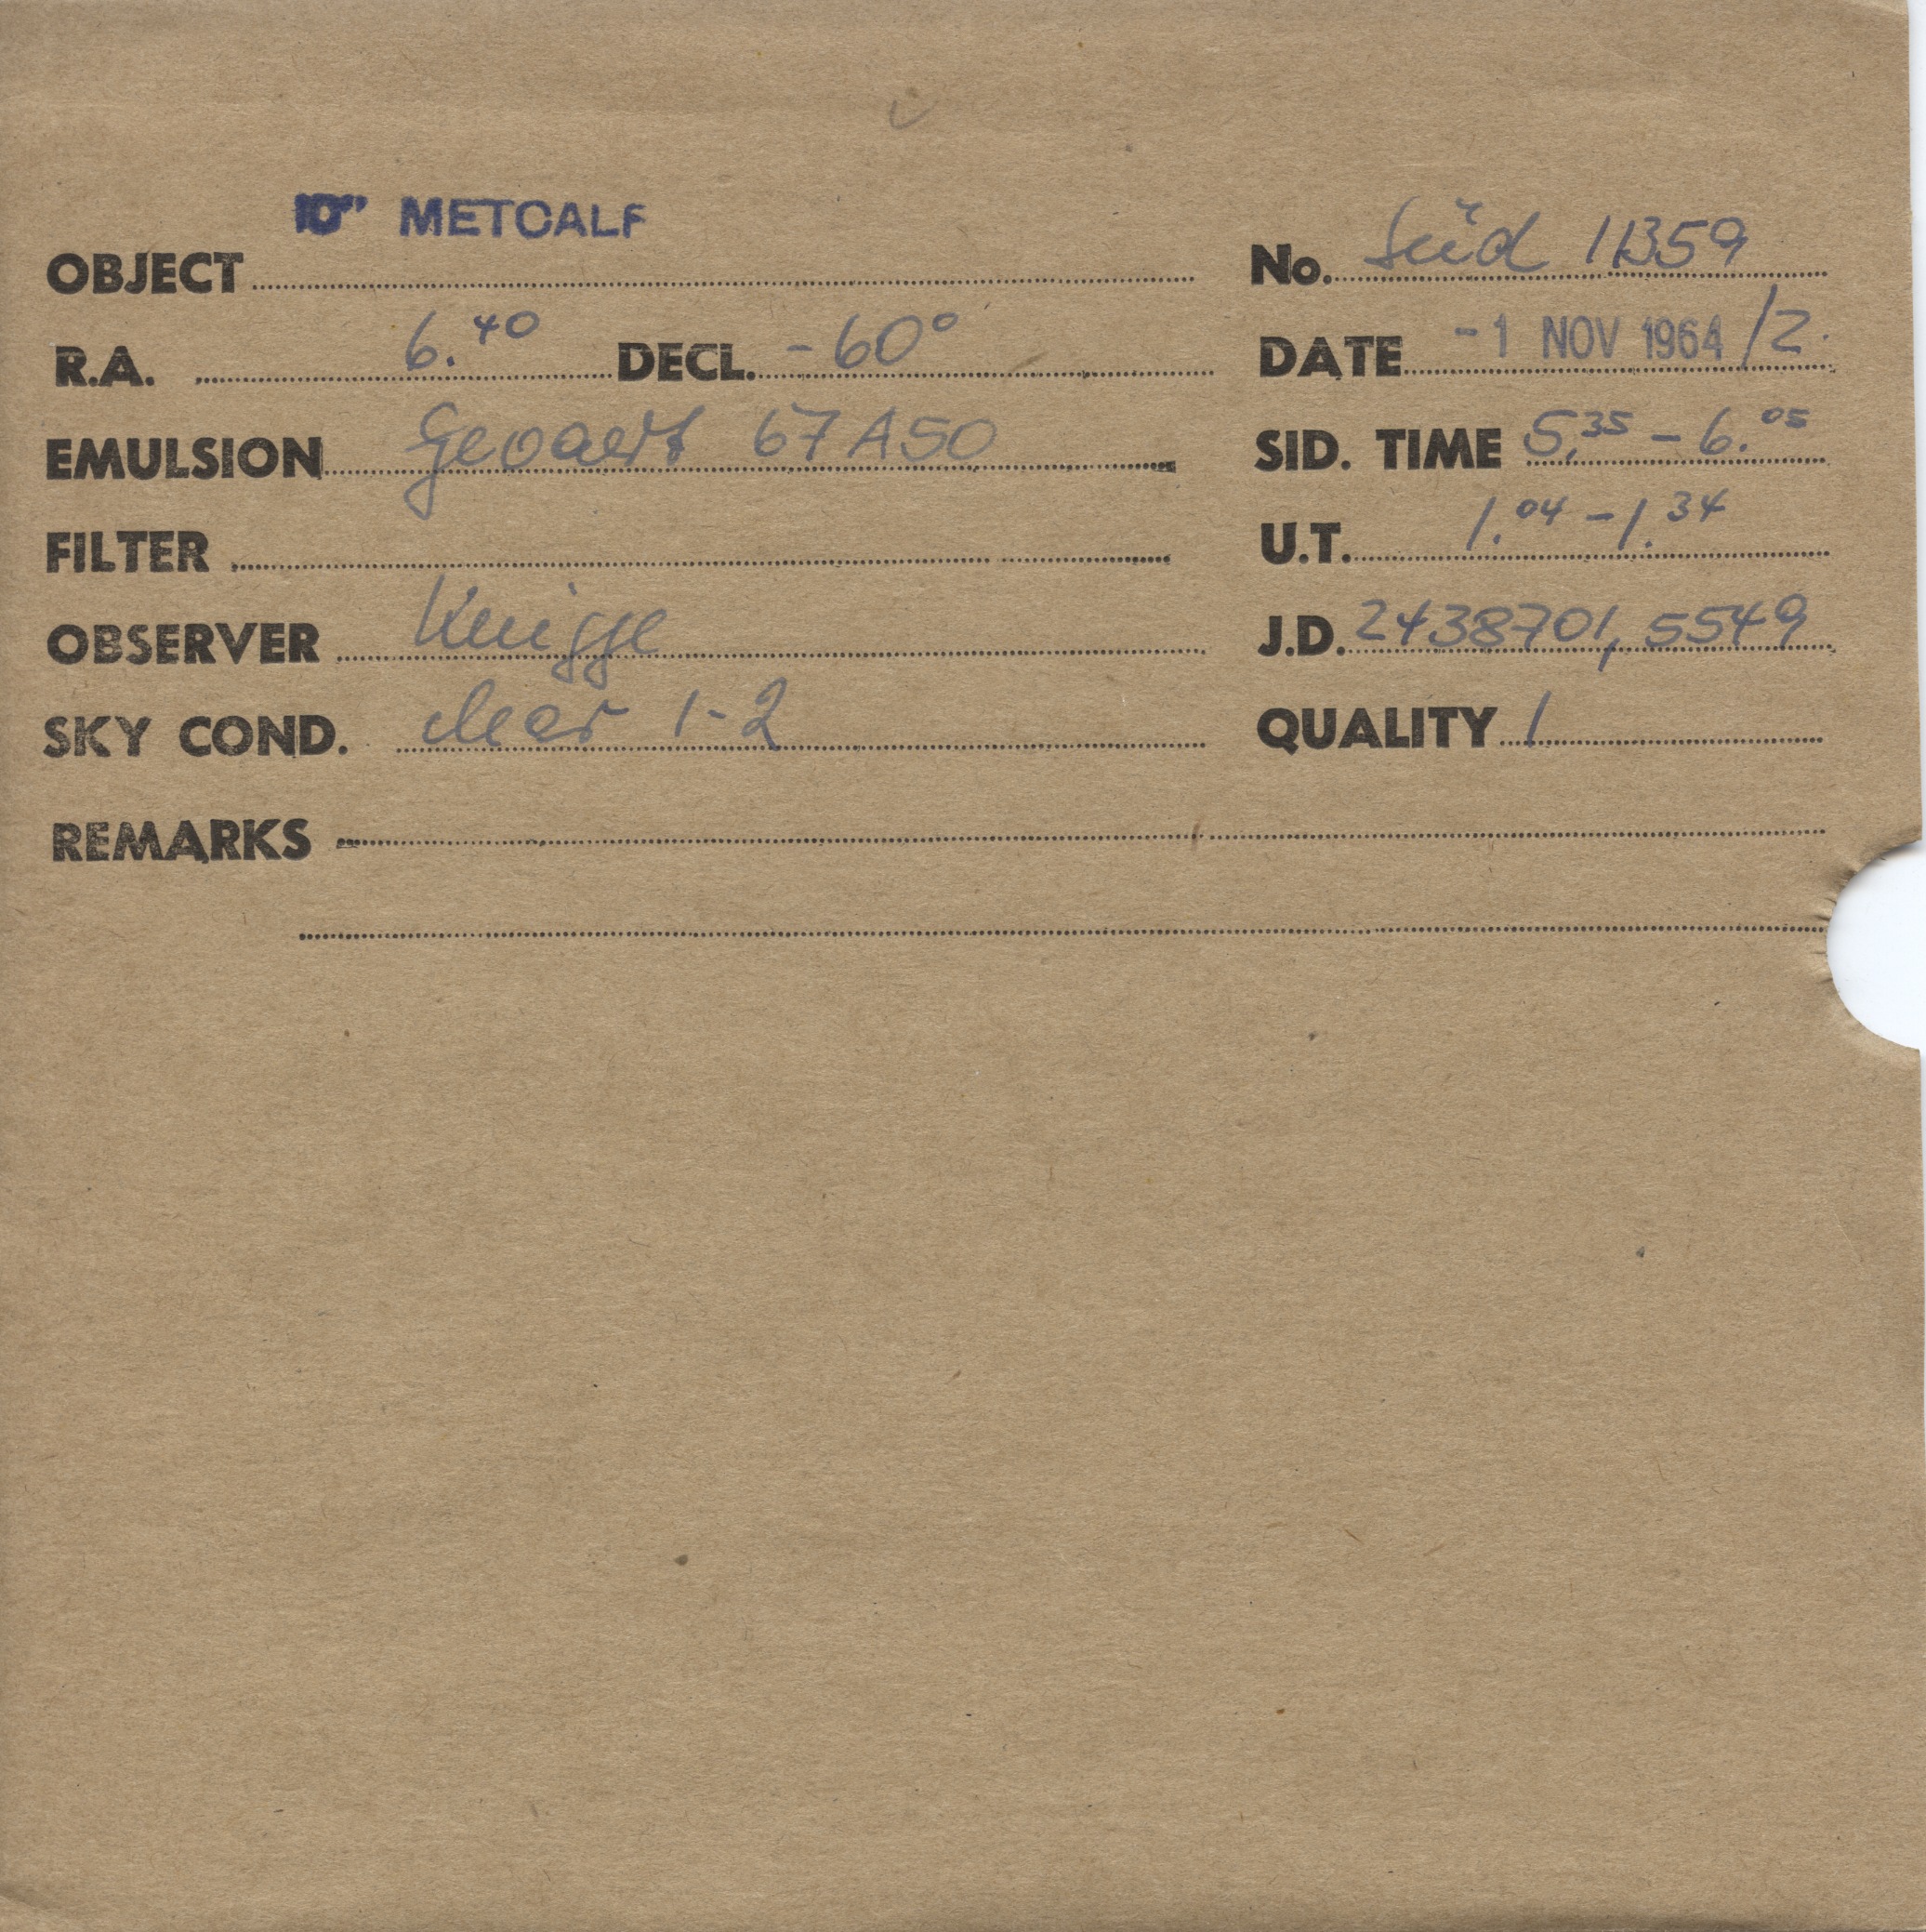 10" METCALF
OBJECT No. Süd 11359
R.A. 6.40 DECL. -60° DATE -1 NOV 1964 /2.
EMULSION Gevaert 67A50 SID. TIME 5.35 - 6.05
FILTER U.T. 1.04 - 1.34
OBSERVER Knigge J.D. 2438701,5549
SKY COND. clear 1-2 QUALITY 1
REMARKS